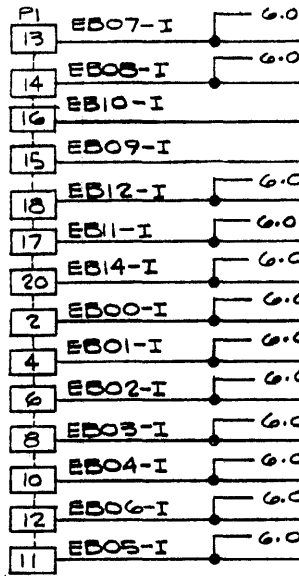 P1
13 EB07-I 6.0
14 EB08-I 6.0
16 EB10-I
15 EB09-I
18 EB12-I 6.0
17 EB11-I 6.0
20 EB14-I 6.0
2 EB00-I 6.0
4 EB01-I 6.0
6 EB02-I 6.0
8 EB03-I 6.0
10 EB04-I 6.0
12 EB06-I 6.0
11 EB05-I 6.0